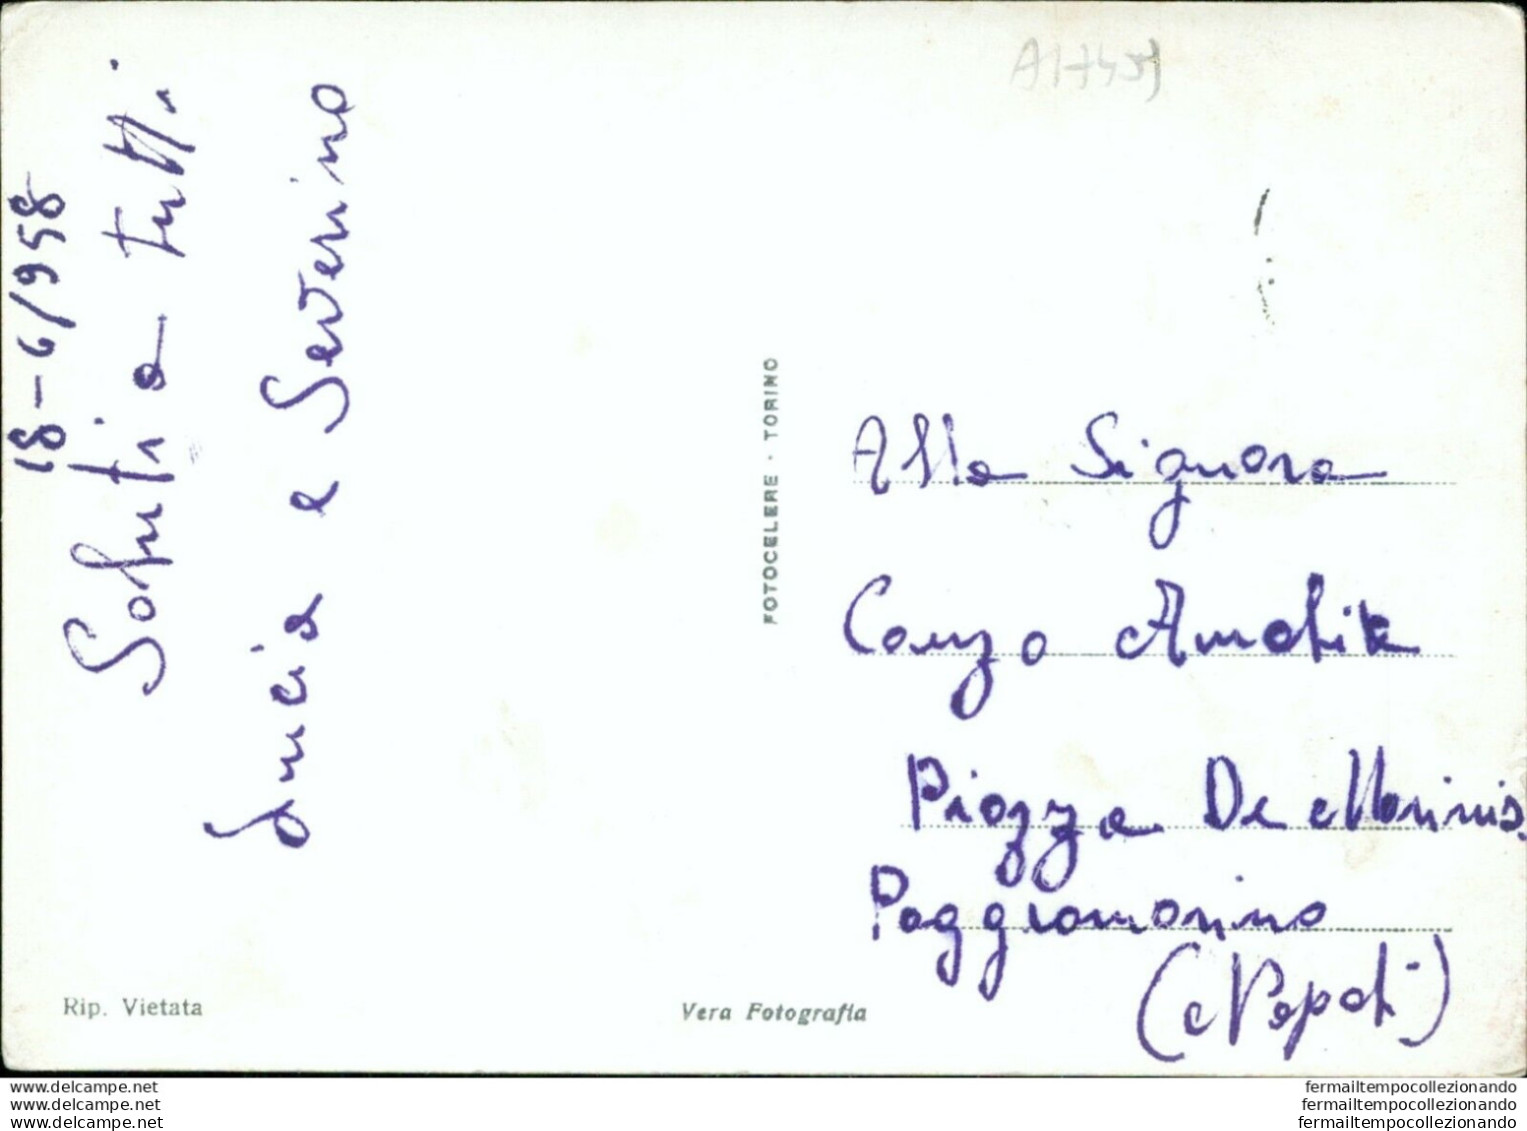 A17459
18-6/958
Saluti a tutti
Lucia e Severino
FOTOCELERE · TORINO
Alla Signora
Canzo Amelia
Piazza De Marinis
Poggiomarino
(Napoli)
Rip. Vietata
Vera Fotografia
www.delcampe.net
www.delcampe.net
www.delcampe.net
fermailtempocollezionando
fermailtempocollezionando
fermailtempocollezionando